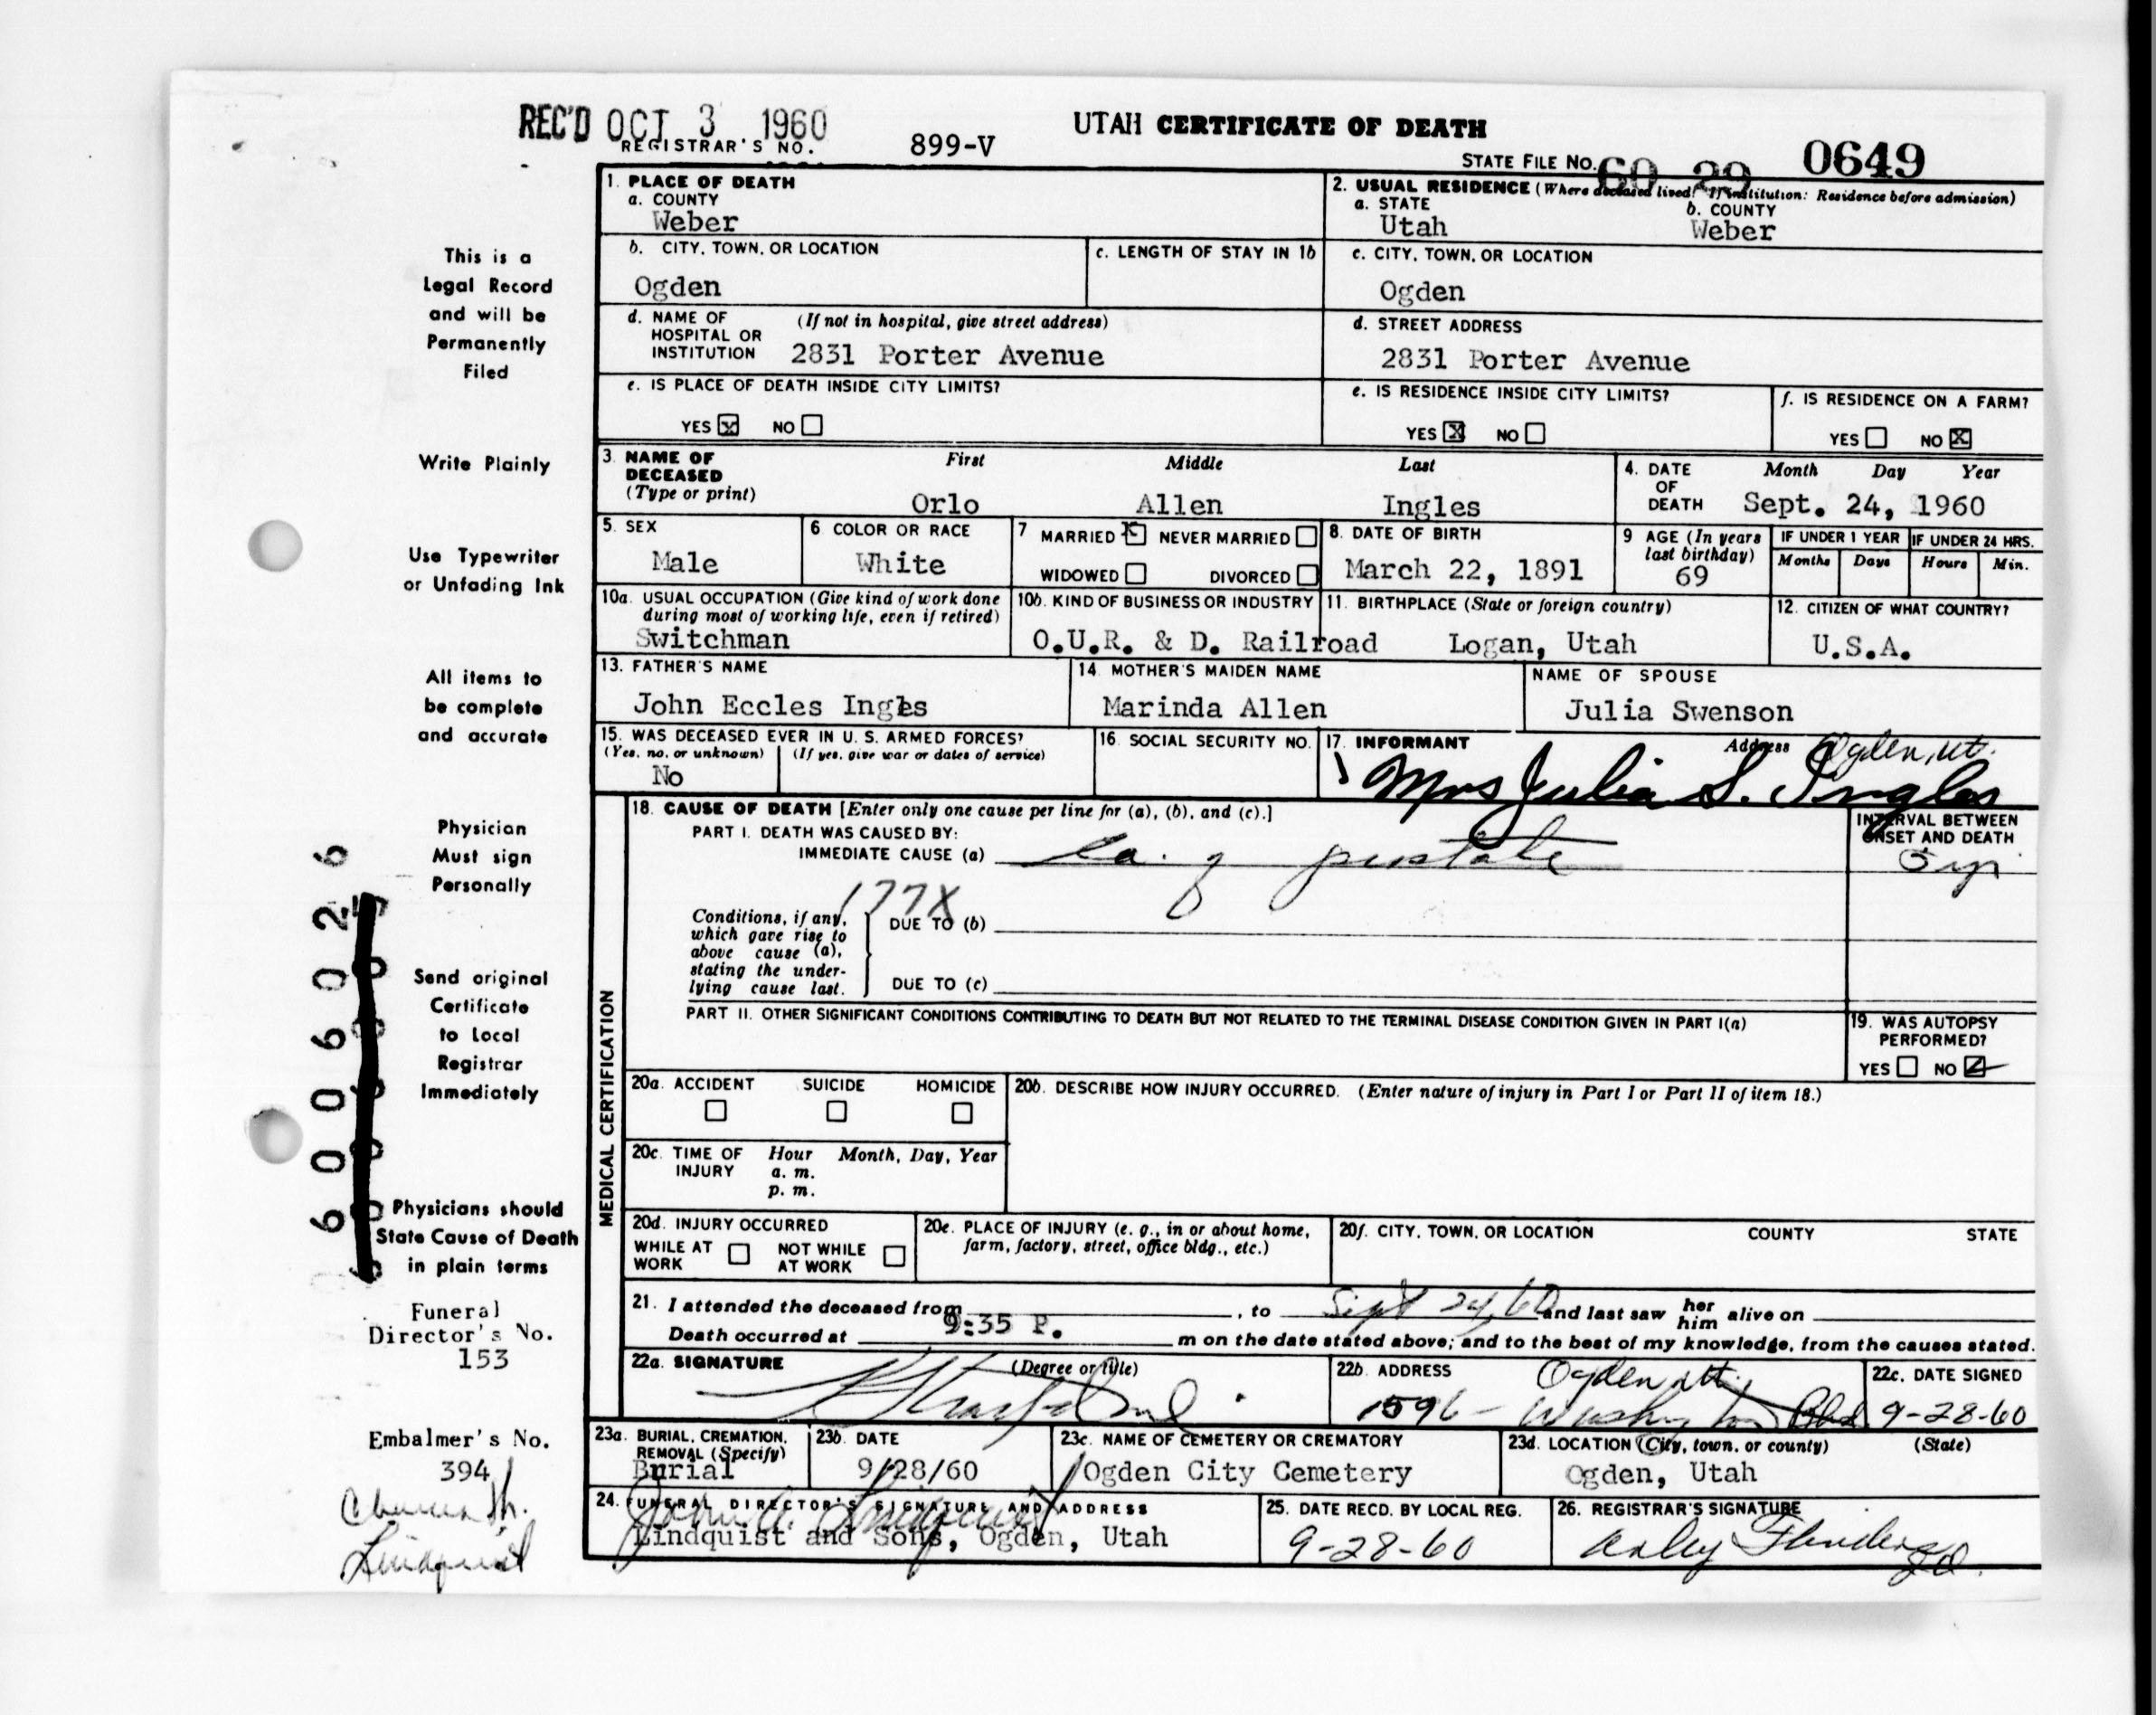 REC'D OCT 3 1960
REGISTRAR'S NO. 899-V
UTAH CERTIFICATE OF DEATH
STATE FILE NO. 60 29 0649
1. PLACE OF DEATH
a. COUNTY
Weber
2. USUAL RESIDENCE (Where deceased lived? If institution: Residence before admission)
a. STATE b. COUNTY
Utah Weber
b. CITY, TOWN, OR LOCATION
Ogden
c. LENGTH OF STAY IN 1b
c. CITY, TOWN, OR LOCATION
Ogden
d. NAME OF HOSPITAL OR INSTITUTION (If not in hospital, give street address)
2831 Porter Avenue
d. STREET ADDRESS
2831 Porter Avenue
e. IS PLACE OF DEATH INSIDE CITY LIMITS?
YES x NO
e. IS RESIDENCE INSIDE CITY LIMITS?
YES X NO
f. IS RESIDENCE ON A FARM?
YES NO X
3. NAME OF DECEASED (Type or print) First Middle Last
Orlo Allen Ingles
4. DATE OF DEATH Month Day Year
Sept. 24, 1960
5. SEX
Male
6 COLOR OR RACE
White
7 MARRIED X NEVER MARRIED
WIDOWED DIVORCED
8. DATE OF BIRTH
March 22, 1891
9 AGE (In years last birthday)
69
IF UNDER 1 YEAR IF UNDER 24 HRS.
Months Days Hours Min.
10a. USUAL OCCUPATION (Give kind of work done during most of working life, even if retired)
Switchman
10b. KIND OF BUSINESS OR INDUSTRY
O.U.R. & D. Railroad
11. BIRTHPLACE (State or foreign country)
Logan, Utah
12. CITIZEN OF WHAT COUNTRY?
U.S.A.
13. FATHER'S NAME
John Eccles Ingles
14. MOTHER'S MAIDEN NAME
Marinda Allen
NAME OF SPOUSE
Julia Swenson
15. WAS DECEASED EVER IN U. S. ARMED FORCES?
(Yes, no, or unknown) (If yes, give war or dates of service)
No
16. SOCIAL SECURITY NO.
17. INFORMANT Address Ogden, Ut.
Mrs Julia S. Ingles
MEDICAL CERTIFICATION
18. CAUSE OF DEATH [Enter only one cause per line for (a), (b), and (c).]
PART I. DEATH WAS CAUSED BY:
IMMEDIATE CAUSE (a) Ca. of prostate
INTERVAL BETWEEN ONSET AND DEATH
177X
Conditions, if any, which gave rise to above cause (a), stating the underlying cause last.
DUE TO (b)
DUE TO (c)
PART II. OTHER SIGNIFICANT CONDITIONS CONTRIBUTING TO DEATH BUT NOT RELATED TO THE TERMINAL DISEASE CONDITION GIVEN IN PART I(a)
19. WAS AUTOPSY PERFORMED?
YES NO
20a. ACCIDENT SUICIDE HOMICIDE
20b. DESCRIBE HOW INJURY OCCURRED. (Enter nature of injury in Part I or Part II of item 18.)
20c. TIME OF INJURY Hour Month, Day, Year
a. m.
p. m.
20d. INJURY OCCURRED
WHILE AT WORK NOT WHILE AT WORK
20e. PLACE OF INJURY (e. g., in or about home, farm, factory, street, office bldg., etc.)
20f. CITY, TOWN, OR LOCATION COUNTY STATE
21. I attended the deceased from , to Sept 24, 60 and last saw her him alive on
Death occurred at 9:35 P. m on the date stated above; and to the best of my knowledge, from the causes stated.
22a. SIGNATURE (Degree or title)
22b. ADDRESS
Ogden Ut.
1596 - Washington Blvd
22c. DATE SIGNED
9-28-60
23a. BURIAL, CREMATION, REMOVAL (Specify)
Burial
23b. DATE
9/28/60
23c. NAME OF CEMETERY OR CREMATORY
Ogden City Cemetery
23d. LOCATION (City, town, or county) (State)
Ogden, Utah
24. FUNERAL DIRECTOR'S SIGNATURE AND ADDRESS
John A. Lindquist
Lindquist and Sons, Ogden, Utah
25. DATE RECD. BY LOCAL REG.
9-28-60
26. REGISTRAR'S SIGNATURE
Arley Flinders
This is a
Legal Record
and will be
Permanently
Filed
Write Plainly
Use Typewriter
or Unfading Ink
All items to
be complete
and accurate
Physician
Must sign
Personally
Send original
Certificate
to Local
Registrar
Immediately
Physicians should
State Cause of Death
in plain terms
Funeral
Director's No.
153
Embalmer's No.
394
Lindquist
6006026